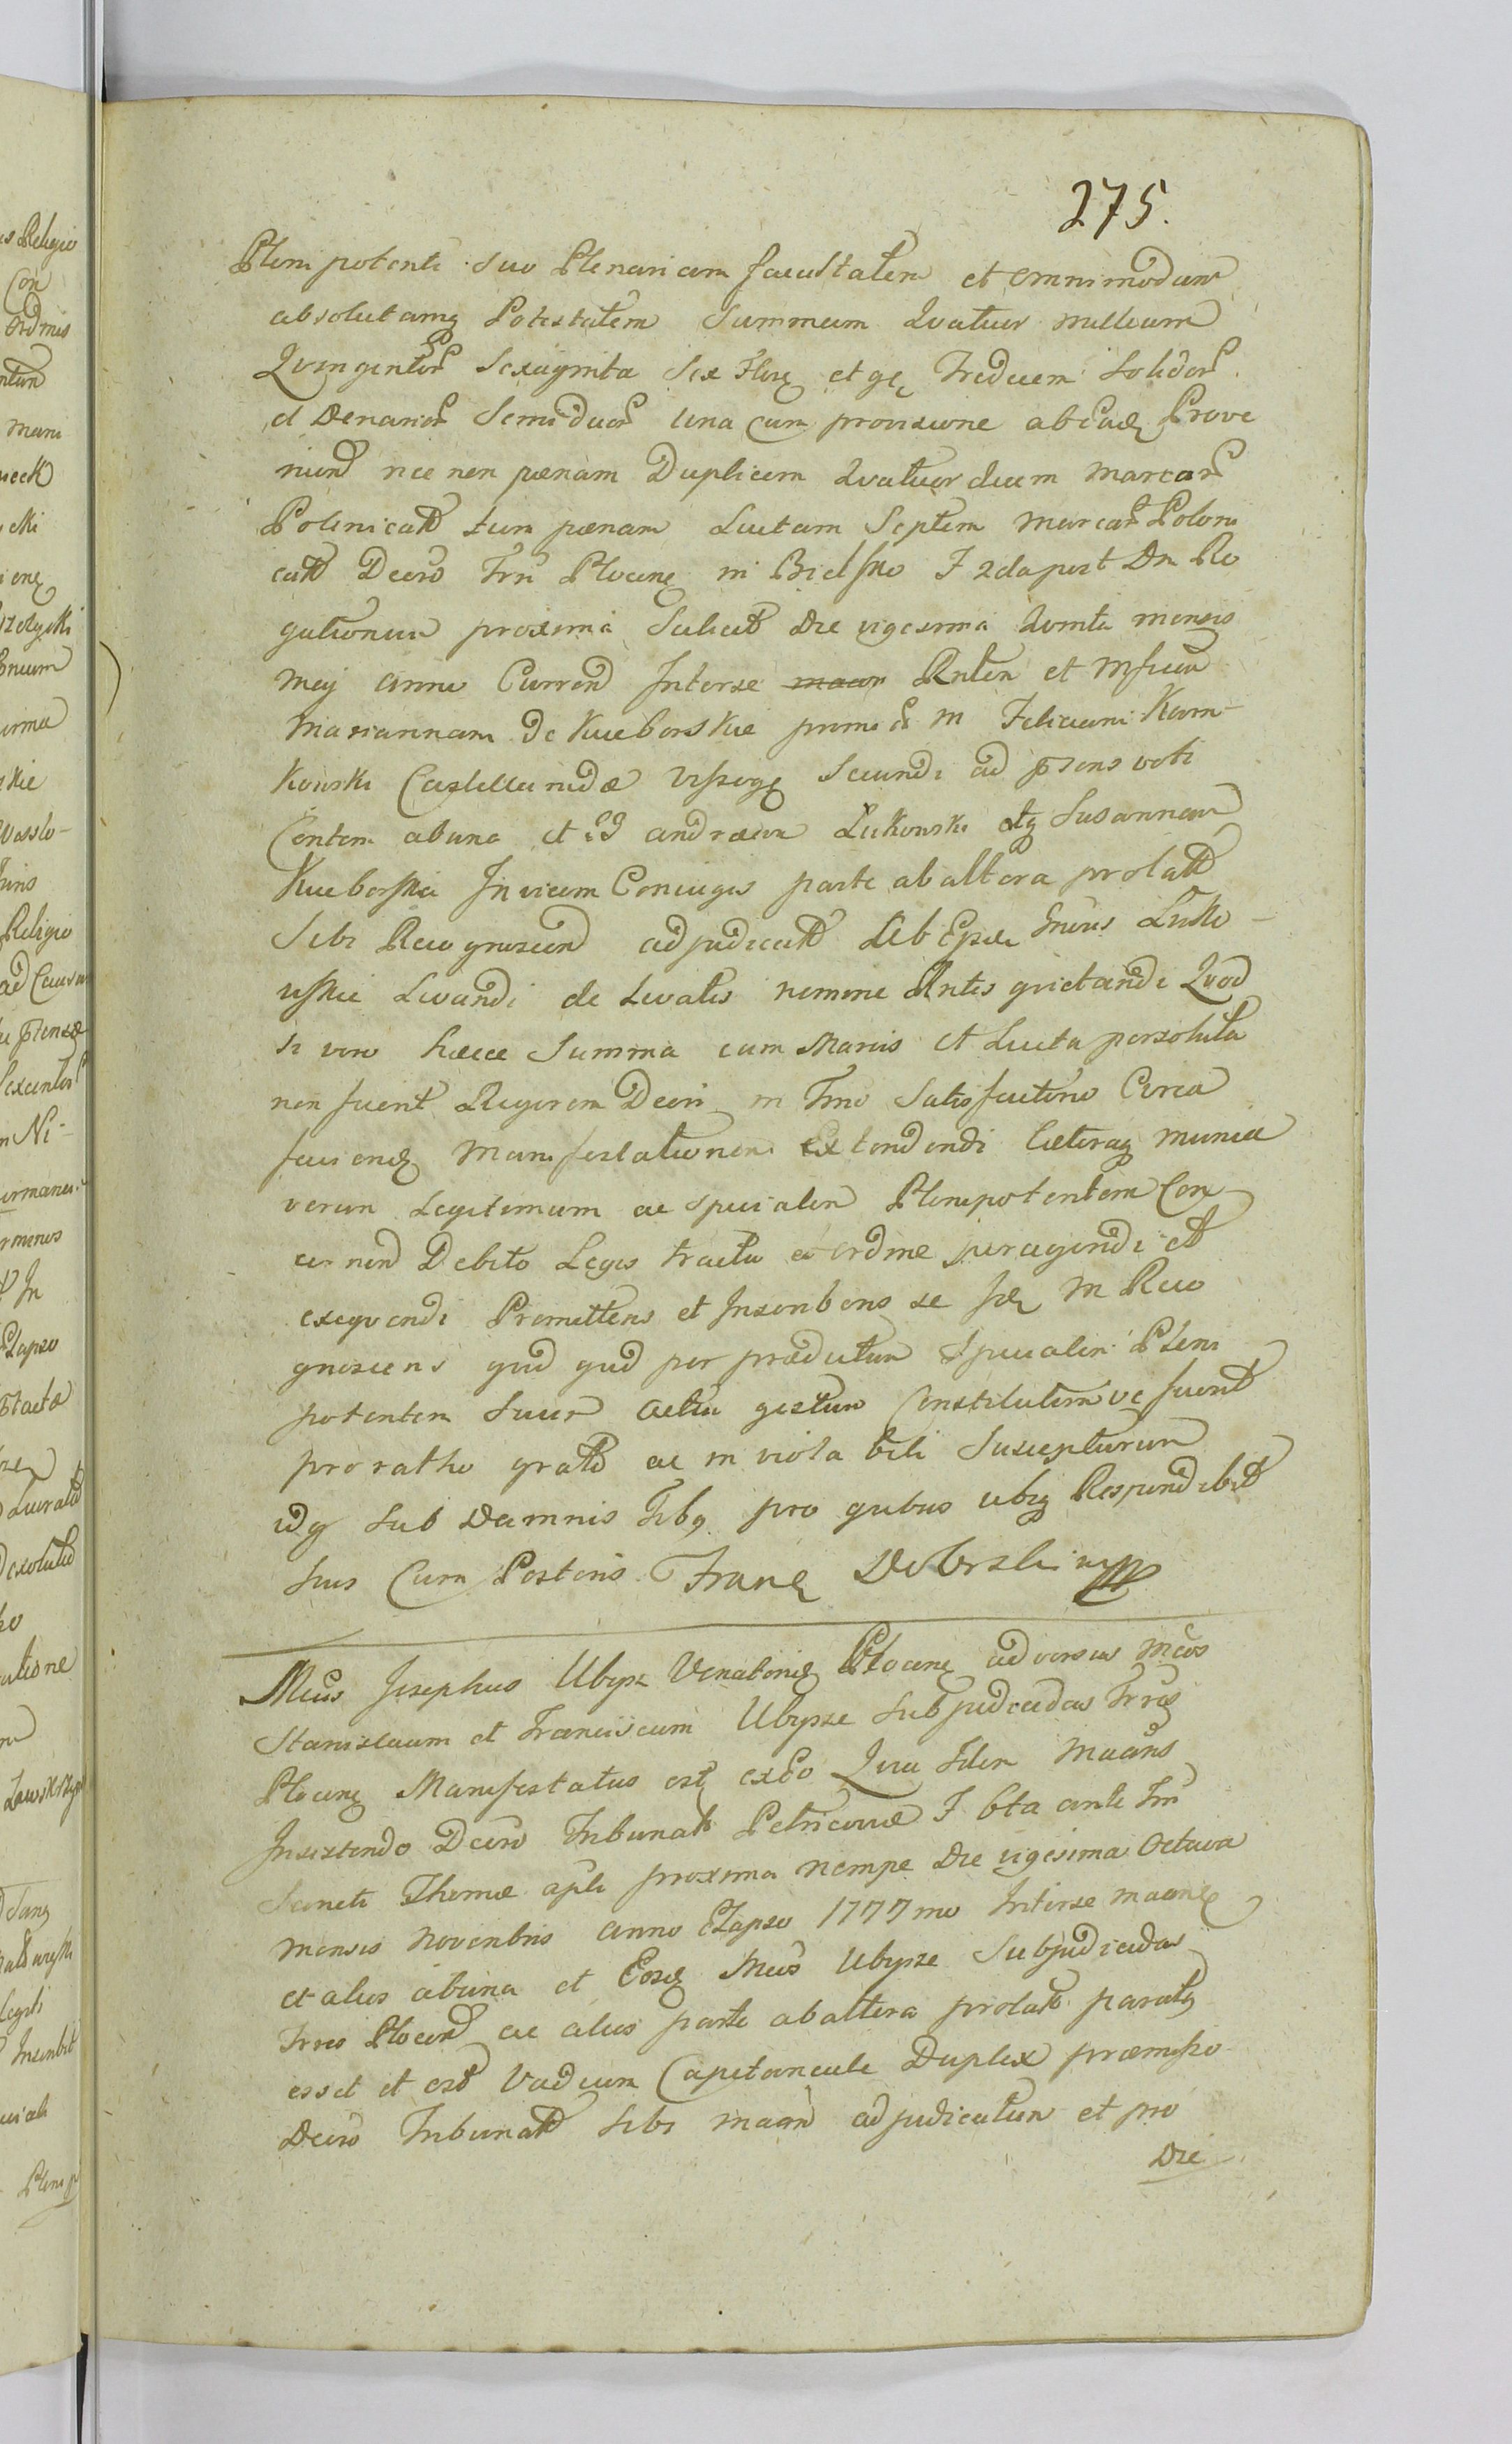 275.
Plenipotenti suo Plenariam facultatem et omnimodam
absolutamq Potestatem Summam Qvatuor millium
Qvingentor Sexaginta Sex Flor et gr Tredecem Solidor
et Denarior Semiduor una cum provisione ab ead Prove
niend nec non pænam Duplicem Qvatuordecem Marcar
Polonicalt tum pænam Luitam Septem Marcar Poloni
calt Decro Trri Plocen in Bielsko F 2da post Dn Ro
gationum proxima Scilicet Die vigesima Qvinta mensis
Maij Anni Currend Interse Rnten et Mficam
Mariannam de Kucborskie primi M Feliciani Karn-
kowski Castellanidæ Vissogr Secundi ad præns voti
Contem ab una et GG Andræam Lukowski atq Susannam
Kucborska Invicem Coniuges parte ab altera prolatt
Sibi Recognoscen adjudicatt ab Epde Gnris Luko-
wskie Levandi de Levatis nomine Rntis qvietandi Qvod
si vero hæcce Summa cum Marcis et Luita persoluta
non fuerit Rigorem Decri in Tmo Satisfactionis Circa
faciend Manifestationem Extendendi Cæteraq Munia
verum Legitimum ac Specialem Plenipotentem Con
cernen Debito Legis tractu et ordine peragendi et
exeqvendi Promittens et Inscribens se Idem M Reco
gnoscens qvid qvid per prædictum Specialem Pleni
potentem Suum actum gestum Constitutumve fuerit
pro ratho grato ac inviolabili Suscepturum
idq Sub Damnis Trbq pro qvibus ubiq Respondebit
Suis Cum Posteris Franc Dobrski mp
Mcus Josephus Ubysz Venatorid Plocen adversus Mcos
Stanislaum et Franciscum Ubysze Subjudicidas Trros
Plocen Manifestatus est ex eo Qvia Idem Maans
Insistendo Decro Tribunali Petricoviæ F 6ta ante Fm
Sancti Thomæ Apli proxima nempe Die vigesima Octava
mensis Novembris Anno Elapso 1777mo Interse Maanem
et alios ab una et Eosd Mcos Ubysze Subjudicidas
Trres Plocen ac alios parte ab altera prolato paratq
esset et est Vadium Capitaneale Duplex præmisso
Decro Tribunalt Sibi Maan adjudicatum et pro
Die